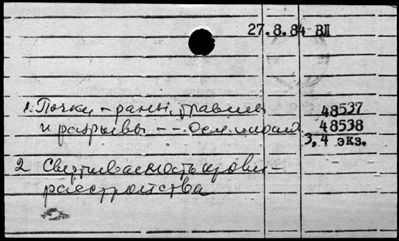 27.8.84 ВП
1. Почки – раны, травмы 48537
и разрывы – – осложнения 48538
3,4 экз.
2 Свертываемость крови –
расстройства